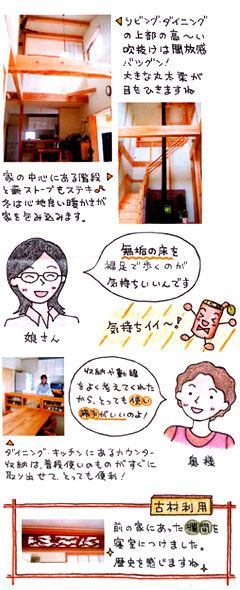 ◀リビング・ダイニング
の上部の高〜い
吹抜けは開放感
バツグン!
大きな丸太梁が
目をひきますね
▲
家の中心にある階段
と薪ストーブもステキ♪
冬は心地良い暖かさが
家を包み込みます。
無垢の床を
裸足で歩くのが
気持ちいいんです
気持ちイイ〜!
娘さん
収納や動線
をよく考えてくれた
から、とっても使い
勝手がいいのよ!
奥様
▲
ダイニング・キッチンにあるカウンター
収納は、普段使いのものがすぐに
取り出せて、とっても便利!
古材利用
前の家にあった欄間を
寝室につけました。
歴史を感じますね